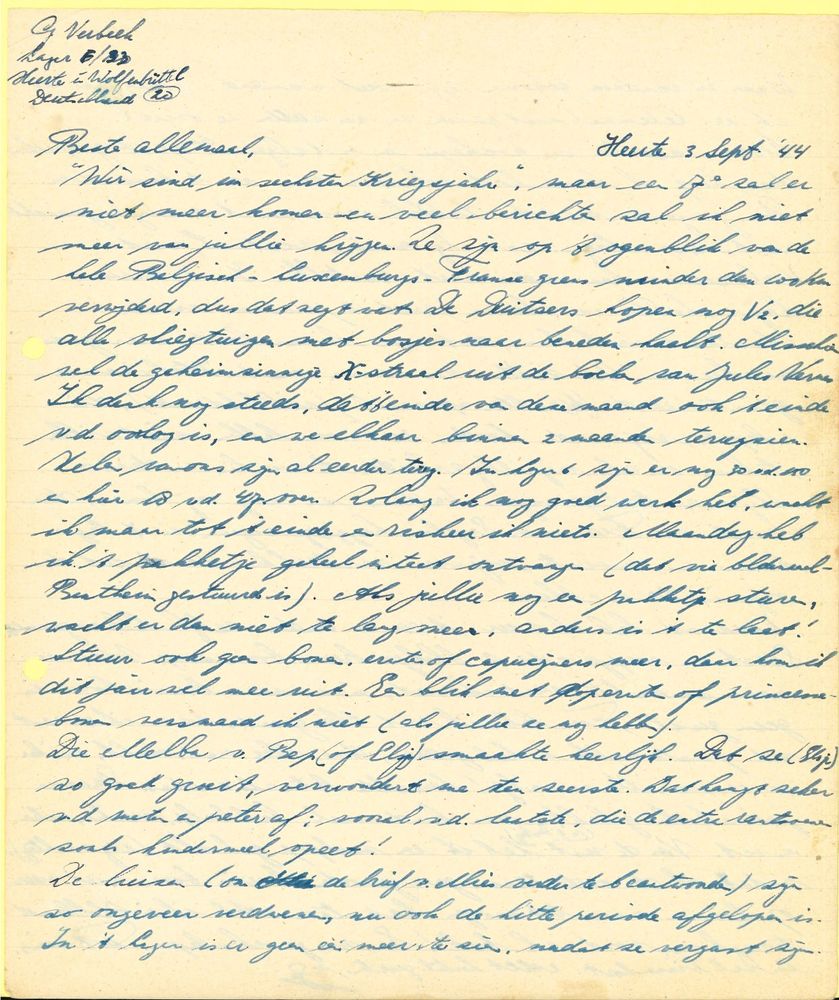 Cg Verbeek
Lager E/33
Heerte ü Wolfenbüttel
Deutschland (20)
Beste allemaal, Heerte 3 Sept. '44
"Wir sind im sechsten Kriegsjahre", maar een 7e zal er
niet meer komen en veel berichten zal ik niet
meer van jullie krijgen. Ze zijn op 't ogenblik van de
hele Belgisch-Luxemburgs-Franse grens minder dan 100 Km
verwijderd, dus dat zegt wat. De Duitsers hopen nog V2, die
alle vliegtuigen met bosjes naar beneden haalt. Misschien
wel de geheimzinnige X-straal uit de boeken van Jules Verne
Ik denk nog steeds, dat 't einde van deze maand ook 't einde
v.d. oorlog is, en we elkaar binnen 2 maanden terugzien.
Velen van ons zijn al eerder terug. In zijn er nog 30 v.d. 100
en hier 18 v.d. 47 over. Zolang ik nog goed werk heb, wacht
ik maar tot 't einde en riskeer ik niets. Maandag heb
ik 't pakketje geheel intact ontvangen (dat via Oldenzaal-
Bentheim gestuurd is). Als jullie nog een pakketje sturen,
wacht er dan niet te lang meer, anders is 't te laat!
Stuur ook geen bonen, erwten of capucijners meer, daar kom ik
dit jaar wel mee uit. Een blik met doperwten of princesse-
bonen versmaad ik niet (als jullie ze nog hebben).
Die Melba v. Bep (of Elsje) smaakte heerlijk. Dat ze (Elsje)
zo goed groeit, verwondert me ten zeerste. Dat hangt zeker
v.d. meter en peter af; vooral v.d. laatste, die de extra rantsoenen
zoals kindermeel opeet!
De luizen (om de brief v. Mies verder te beantwoorden) zijn
zo ongeveer verdwenen, nu ook de hitte periode afgelopen is.
In 't lager is er geen één meer te zien, nadat ze vergast zijn.